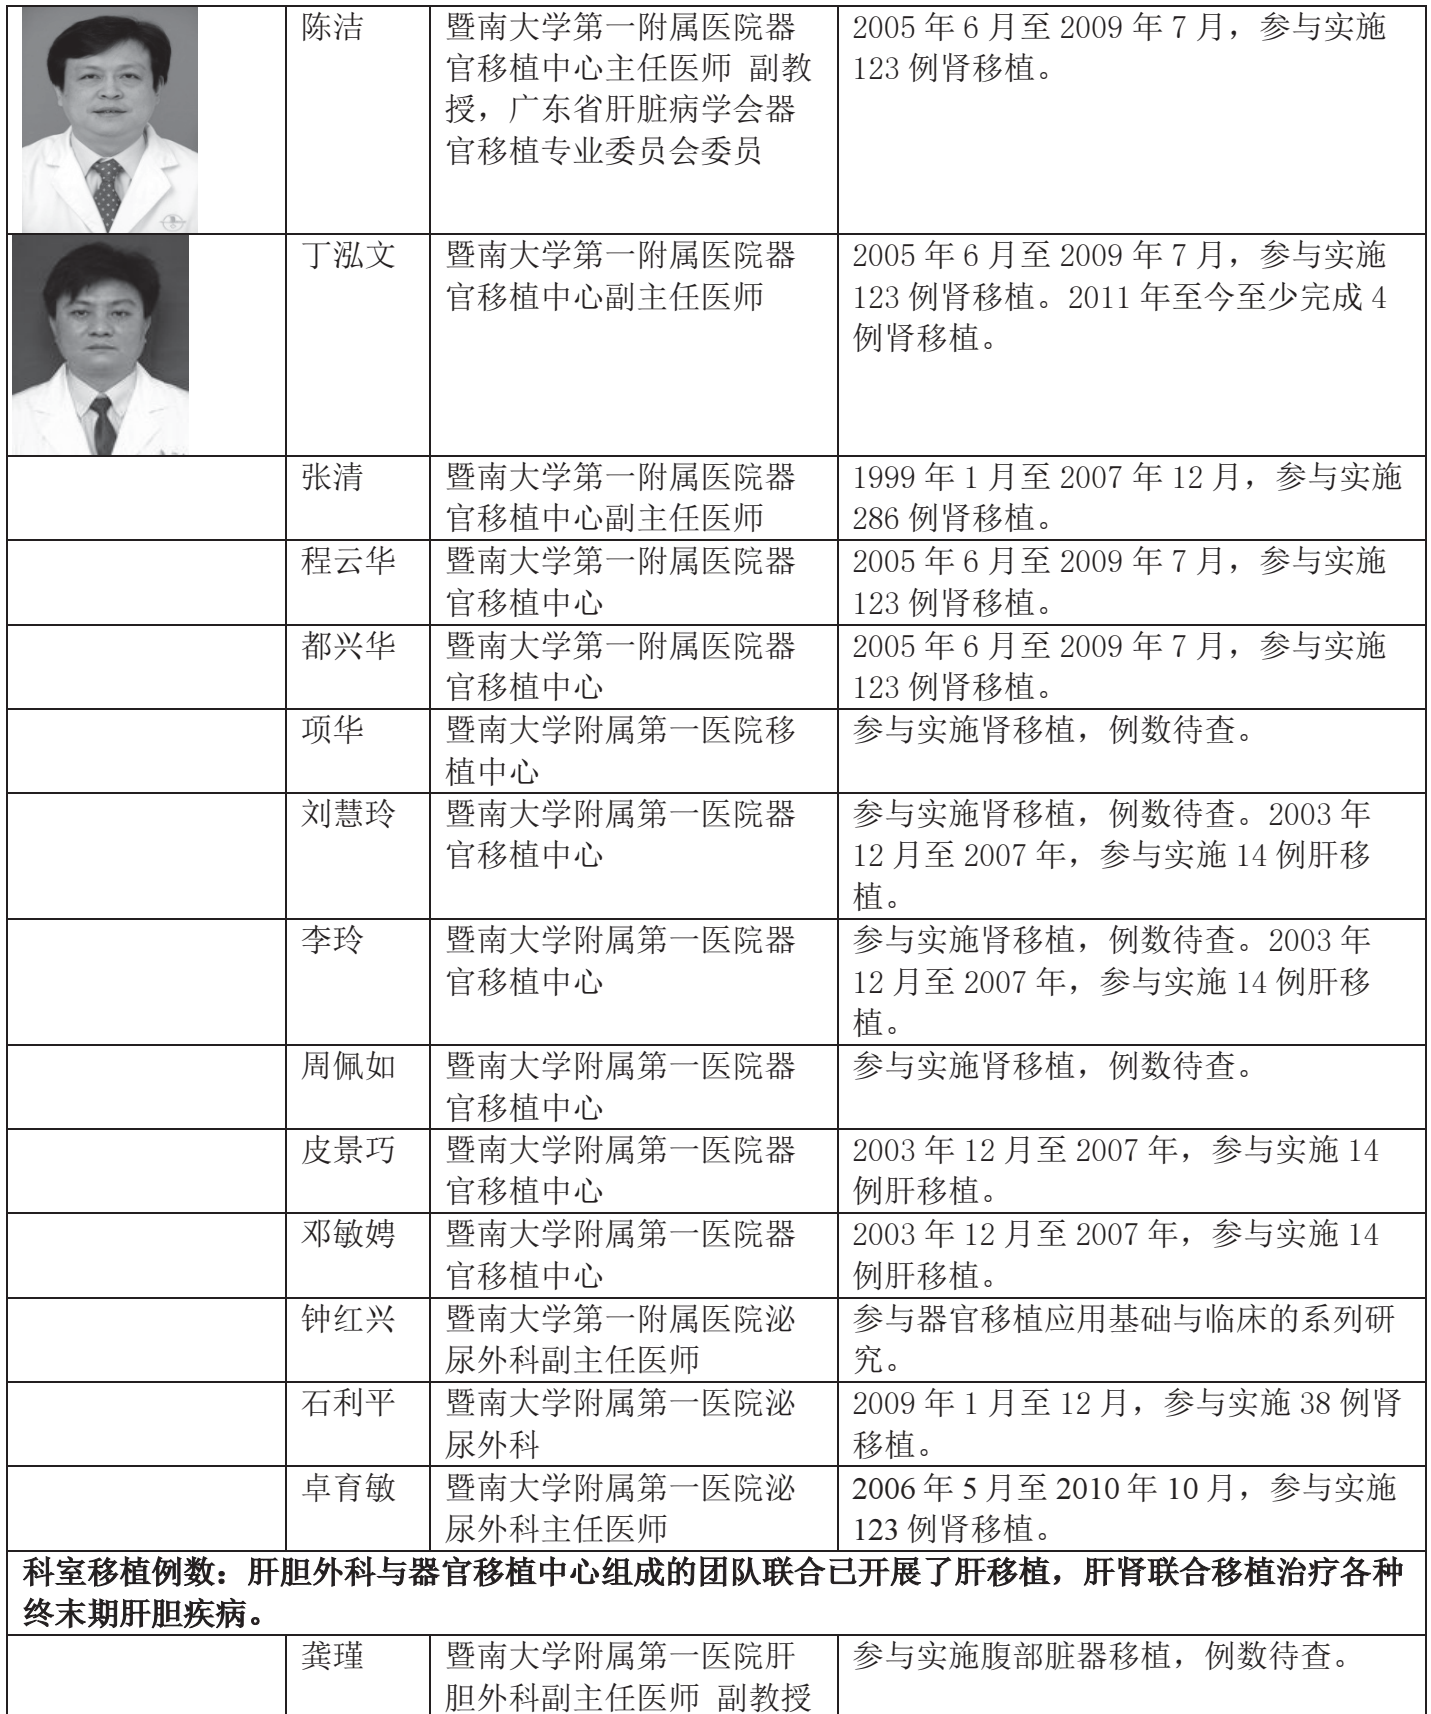 陈洁
暨南大学第一附属医院器
官移植中心主任医师 副教
授，广东省肝脏病学会器
官移植专业委员会委员
2005 年 6 月至 2009 年 7 月，参与实施
123 例肾移植。
丁泓文
暨南大学第一附属医院器
官移植中心副主任医师
2005 年 6 月至 2009 年 7 月，参与实施
123 例肾移植。2011 年至今至少完成 4
例肾移植。
张清
暨南大学第一附属医院器
官移植中心副主任医师
1999 年 1 月至 2007 年 12 月，参与实施
286 例肾移植。
程云华
暨南大学第一附属医院器
官移植中心
2005 年 6 月至 2009 年 7 月，参与实施
123 例肾移植。
都兴华
暨南大学第一附属医院器
官移植中心
2005 年 6 月至 2009 年 7 月，参与实施
123 例肾移植。
项华
暨南大学附属第一医院移
植中心
参与实施肾移植，例数待查。
刘慧玲
暨南大学附属第一医院器
官移植中心
参与实施肾移植，例数待查。2003 年
12 月至 2007 年，参与实施 14 例肝移
植。
李玲
暨南大学附属第一医院器
官移植中心
参与实施肾移植，例数待查。2003 年
12 月至 2007 年，参与实施 14 例肝移
植。
周佩如
暨南大学附属第一医院器
官移植中心
参与实施肾移植，例数待查。
皮景巧
暨南大学附属第一医院器
官移植中心
2003 年 12 月至 2007 年，参与实施 14
例肝移植。
邓敏娉
暨南大学附属第一医院器
官移植中心
2003 年 12 月至 2007 年，参与实施 14
例肝移植。
钟红兴
暨南大学第一附属医院泌
尿外科副主任医师
参与器官移植应用基础与临床的系列研
究。
石利平
暨南大学附属第一医院泌
尿外科
2009 年 1 月至 12 月，参与实施 38 例肾
移植。
卓育敏
暨南大学附属第一医院泌
尿外科主任医师
2006 年 5 月至 2010 年 10 月，参与实施
123 例肾移植。
科室移植例数：肝胆外科与器官移植中心组成的团队联合已开展了肝移植，肝肾联合移植治疗各种
终末期肝胆疾病。
龚瑾
暨南大学附属第一医院肝
胆外科副主任医师 副教授
参与实施腹部脏器移植，例数待查。